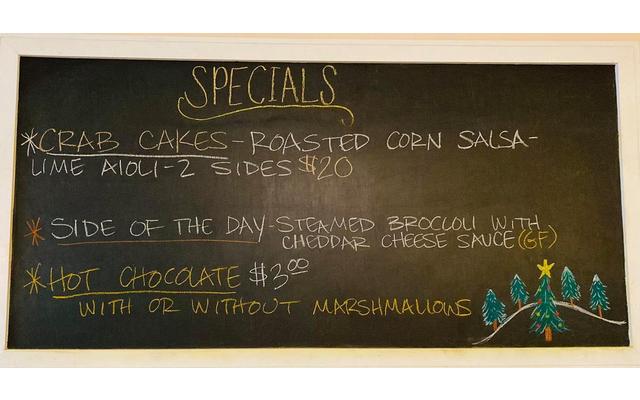 SPECIALS
*CRAB CAKES-ROASTED CORN SALSA-
LIME AIOLI-2 SIDES $20
* SIDE OF THE DAY-STEAMED BROCCOLI WITH
CHEDDAR CHEESE SAUCE (GF)
*HOT CHOCOLATE $3.00
WITH OR WITHOUT MARSHMALLOWS